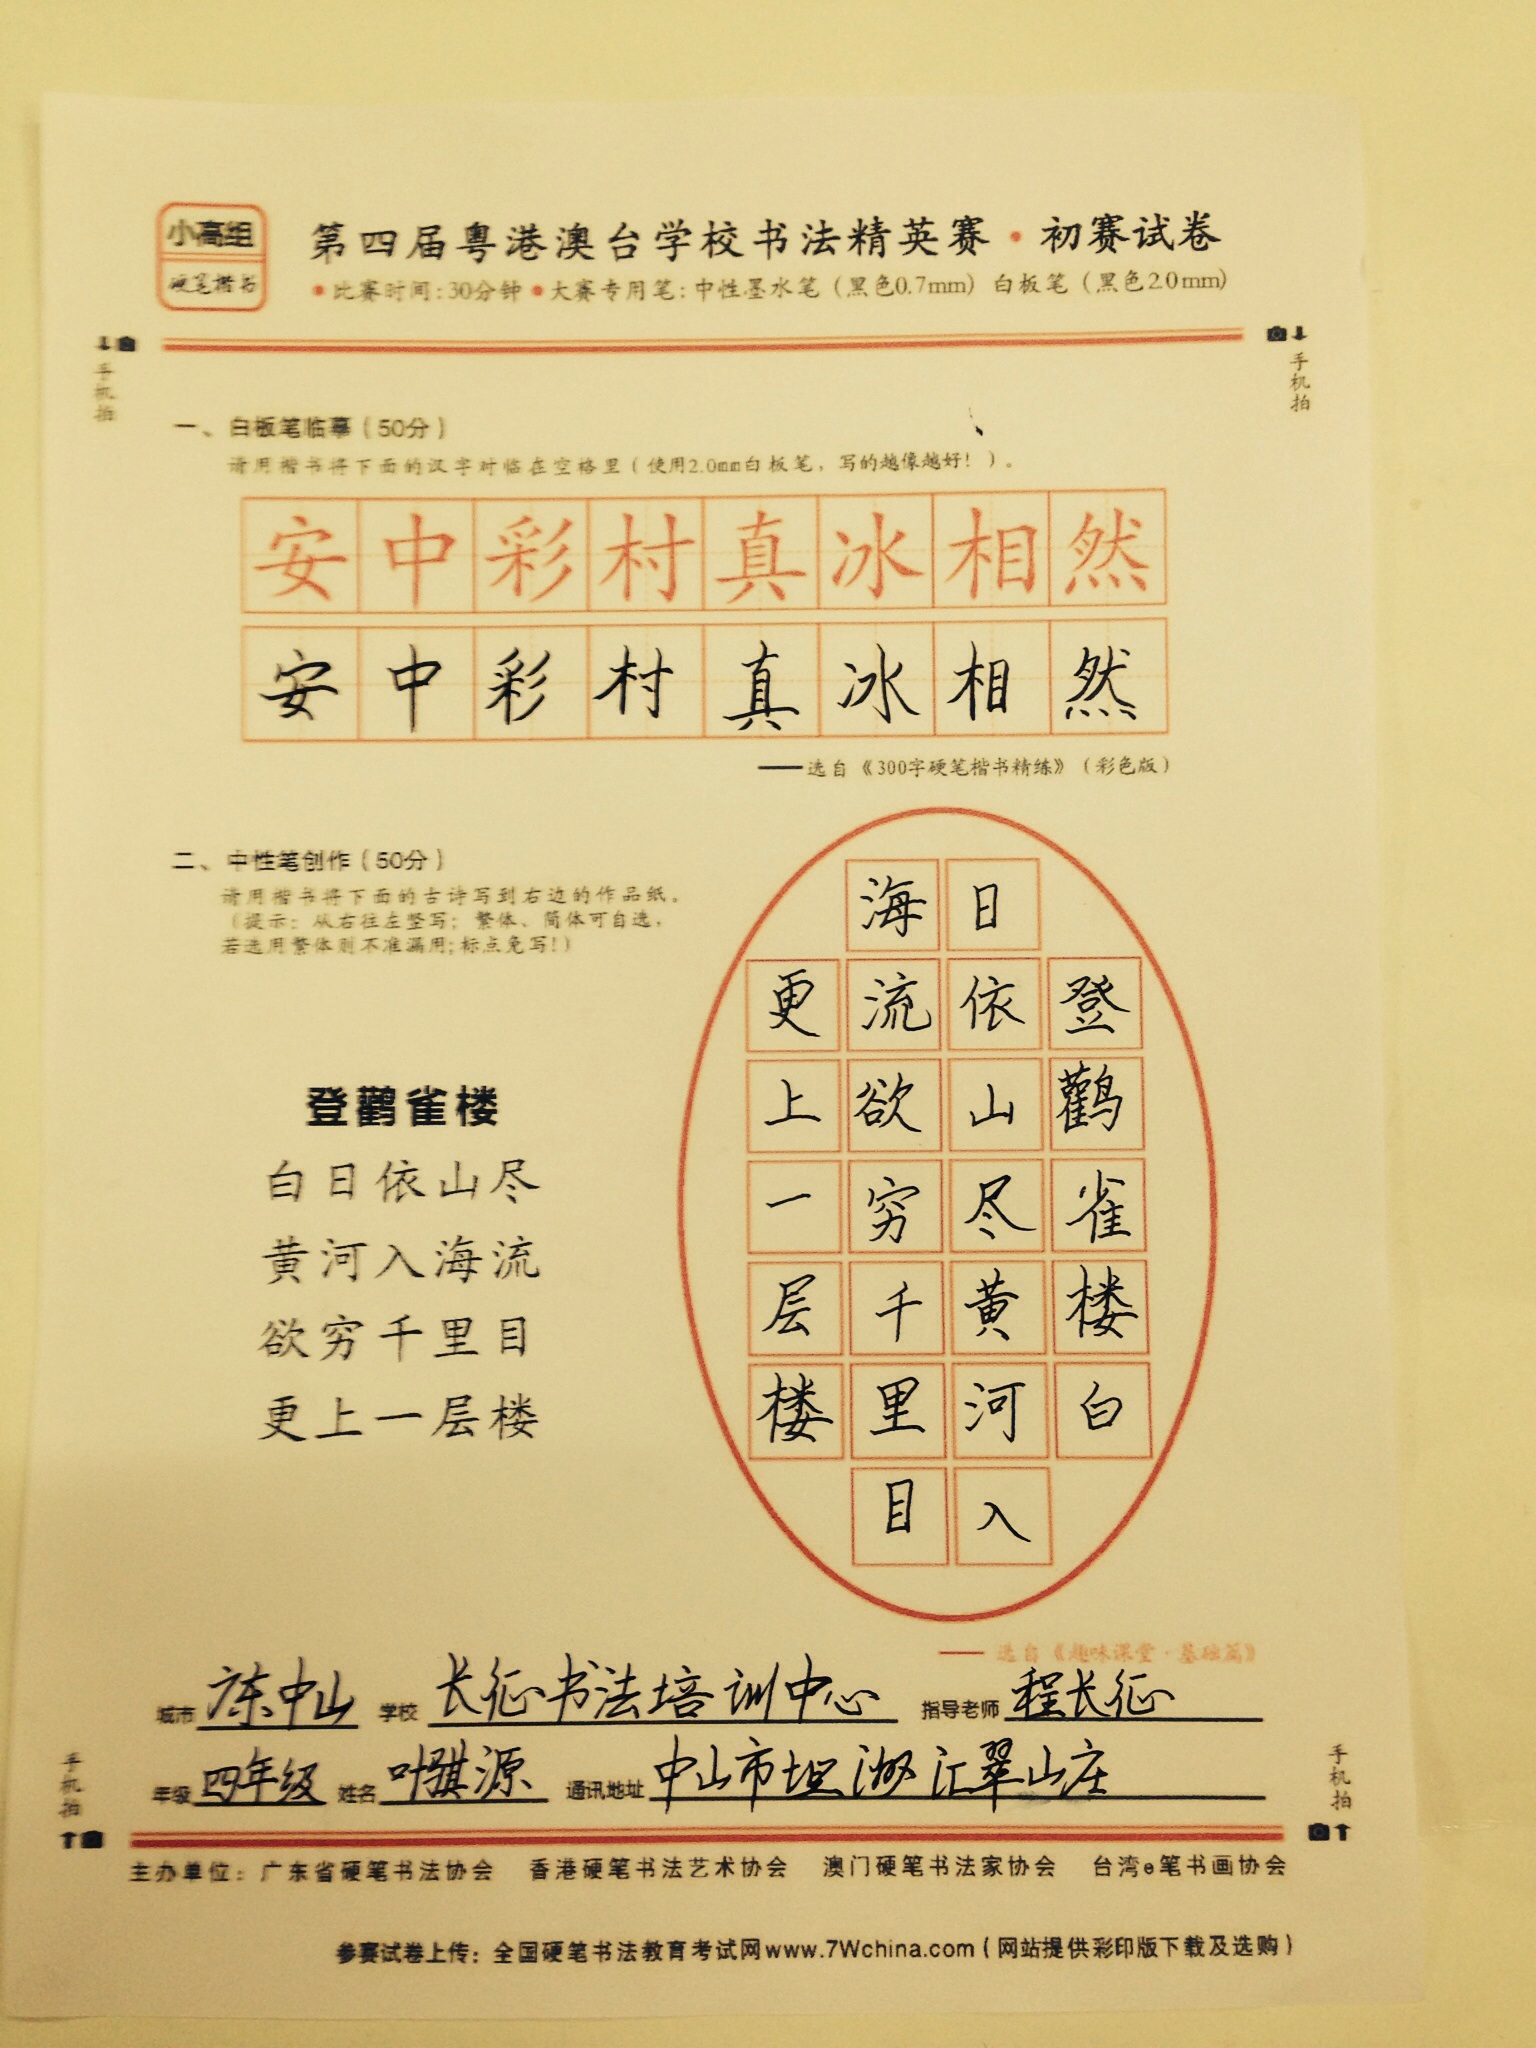 小高组
硬笔楷书
第四届粤港澳台学校书法精英赛·初赛试卷
•比赛时间:30分钟•大赛专用笔:中性墨水笔(黑色0.7mm) 白板笔(黑色2.0mm)
手机拍
手机拍
一、白板笔临摹(50分)
请用楷书将下面的汉字对临在空格里(使用2.0mm白板笔,写的越像越好!)。
安中彩村真冰相然
安中彩村真冰相然
——选自《300字硬笔楷书精练》(彩色版)
二、中性笔创作(50分)
请用楷书将下面的古诗写到右边的作品纸。
(提示:从右往左竖写;繁体、简体可自选,
若选用繁体则不准漏用;标点免写!)
登鹳雀楼
白日依山尽
黄河入海流
欲穷千里目
更上一层楼
登鹳雀楼白
日依山尽黄河入
海流欲穷千里目
更上一层楼
——选自《趣味课堂·基础篇》
城市 广东中山 学校 长征书法培训中心 指导老师 程长征
年级 四年级 姓名 叶骐源 通讯地址 中山市坦洲汇翠山庄
手机拍
手机拍
主办单位:广东省硬笔书法协会 香港硬笔书法艺术协会 澳门硬笔书法家协会 台湾e笔书画协会
参赛试卷上传:全国硬笔书法教育考试网www.7Wchina.com(网站提供彩印版下载及选购)